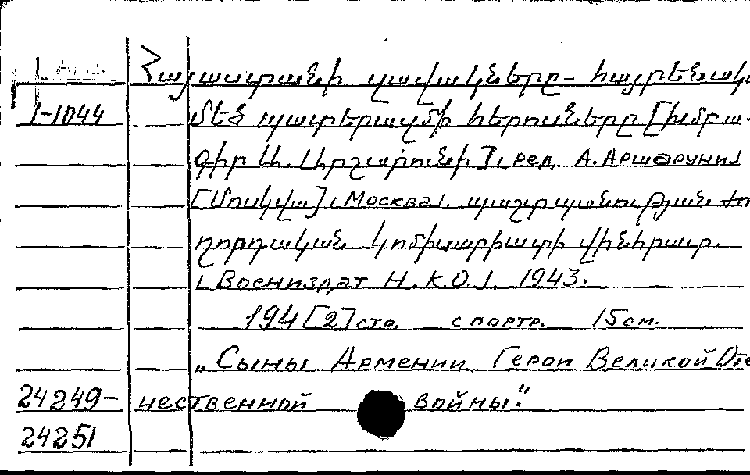 Հայաստանի զավակները - հայրենակ
1-1044 մեծ պատերազմի հերոսները [խմբա-
գիր Ա. Արշարունի], ред. А. Аршаруни
[Մոսկվա], Москва, պաշտպանության ժո
ղորդական կոմիսարիատի
Воениздат Н.К.О. 1943.
194 [2] стр. с портр. 15 см.
„Сыны Армении, Герои Великой Оте
24249- чественной войны."
24251